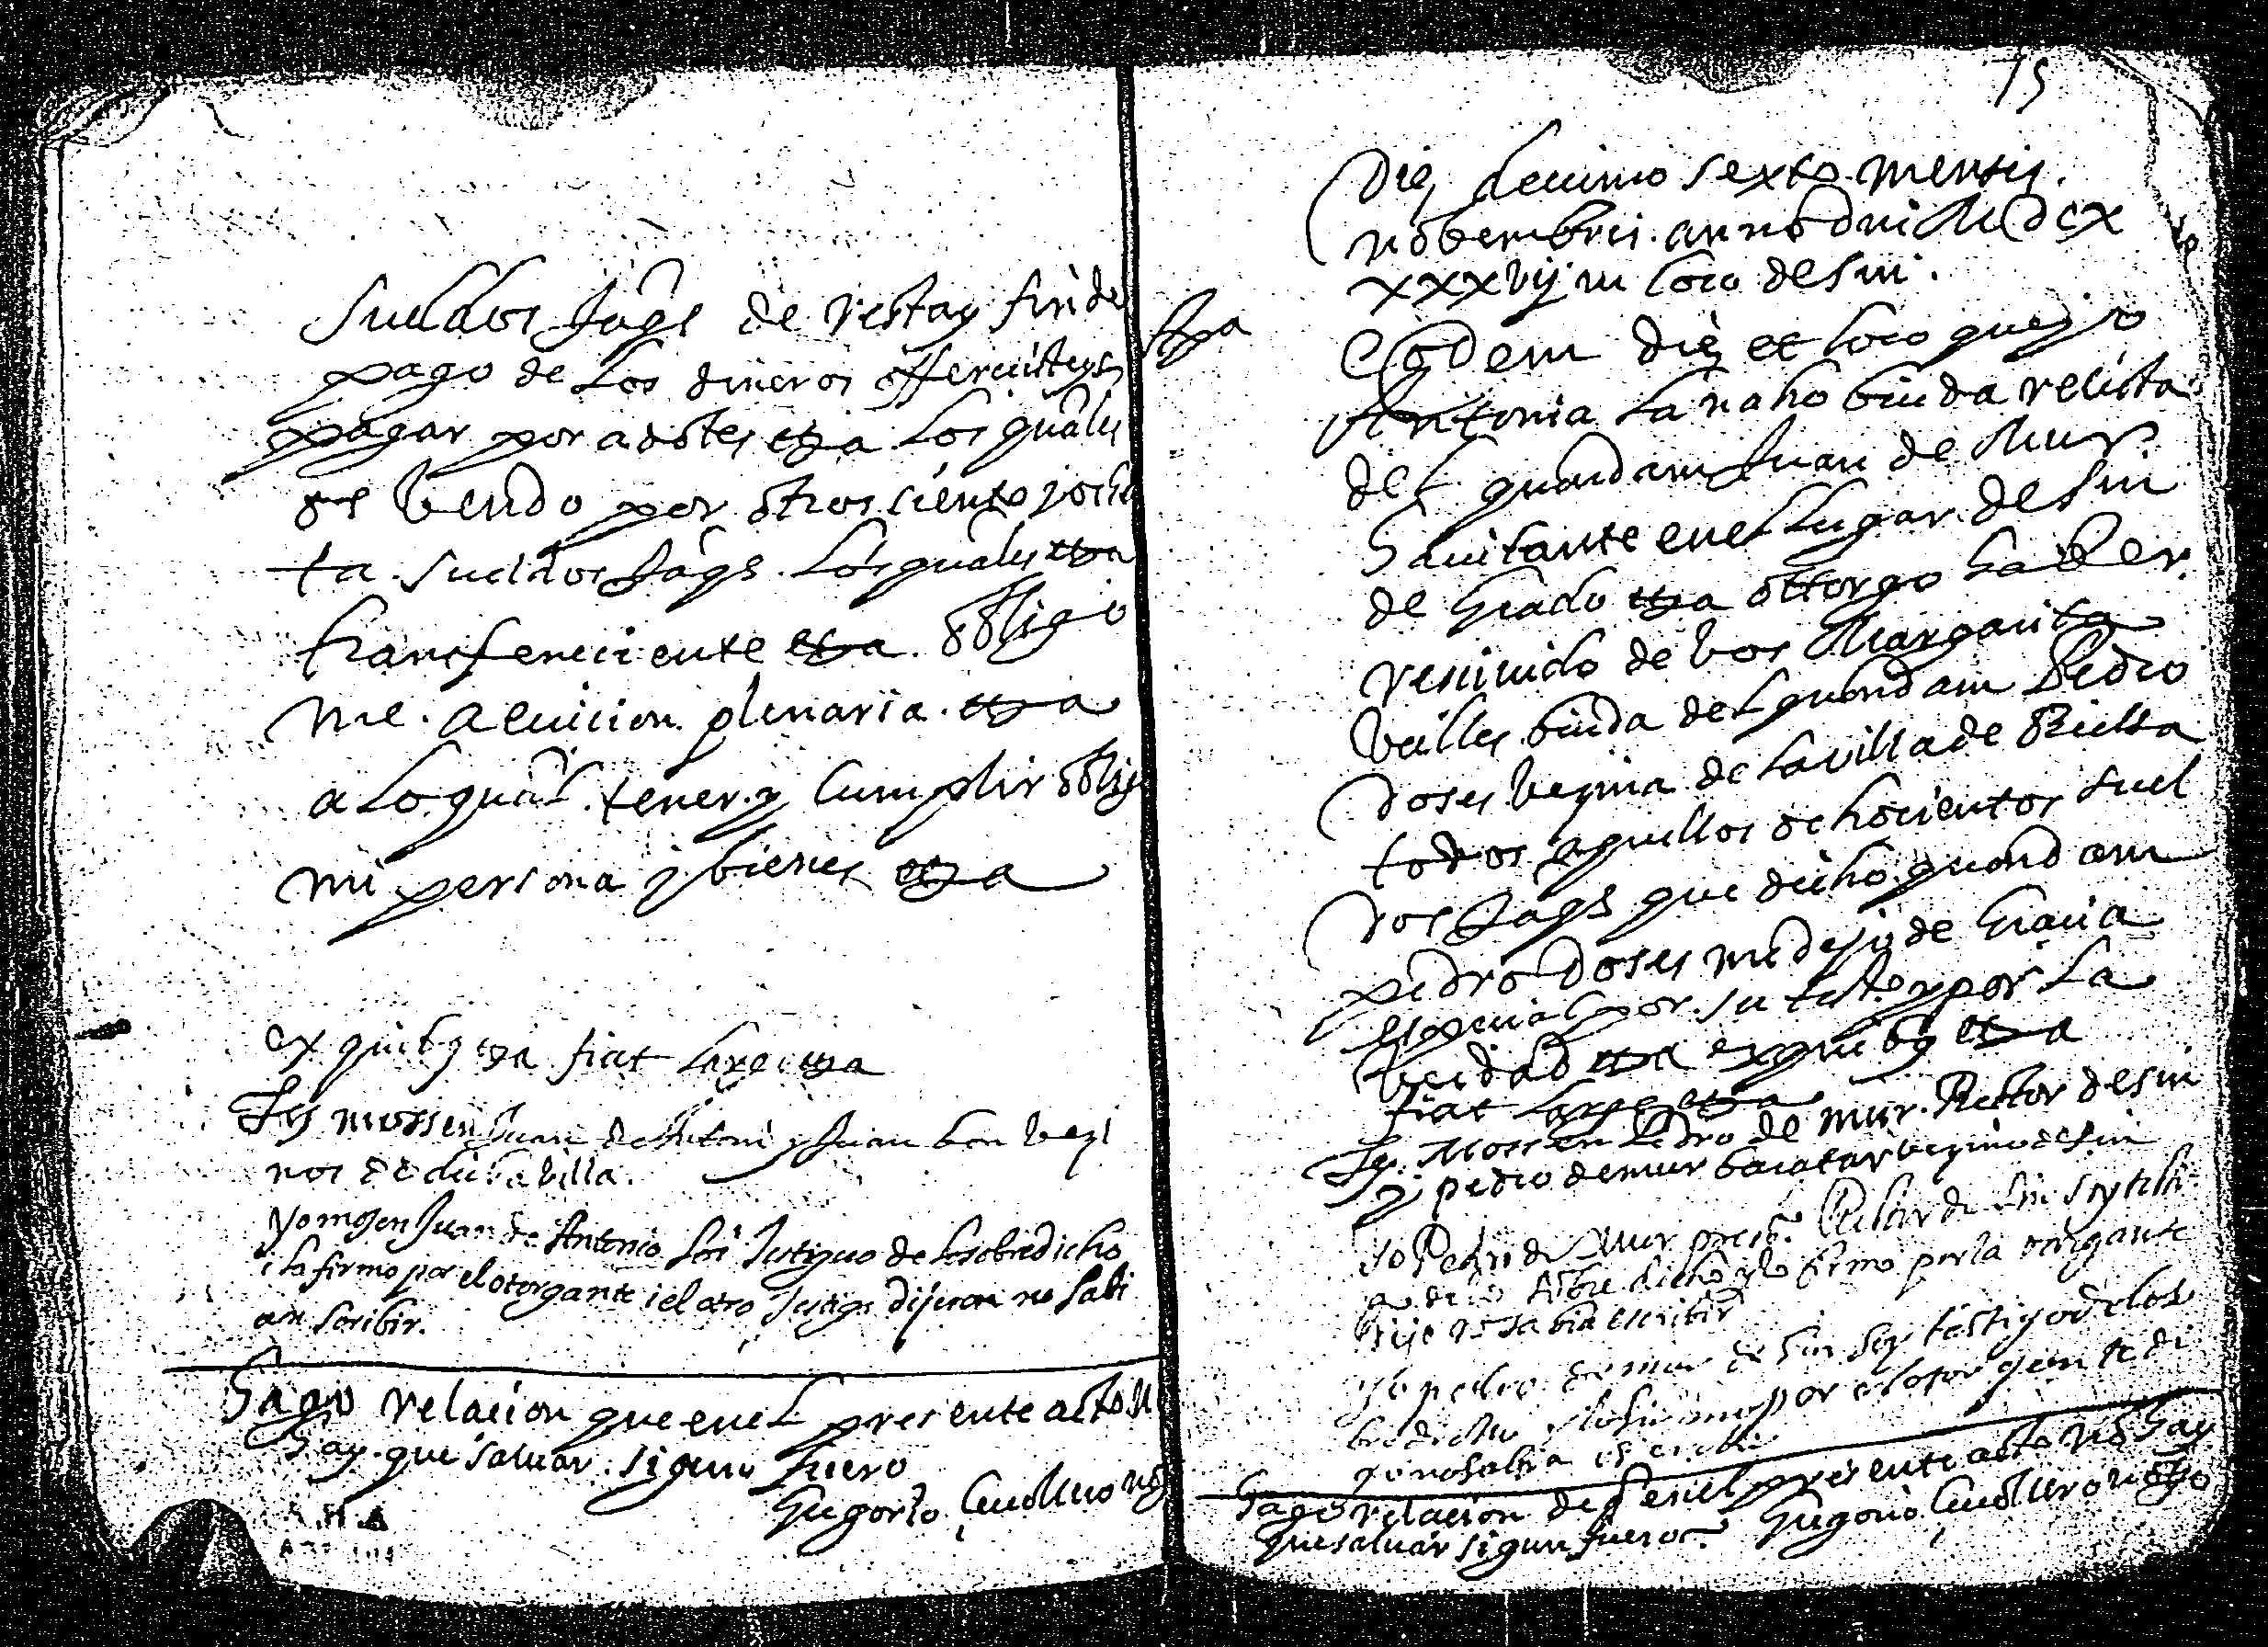 Sueldos Jaqs de resta y fin de
pago de los dineros offerecisteys
pagar por adotes etza los quales
os bendo por otros ciento y ochē
ta sueldos Jaqs. los quales etza
transfereciente etza. obligo
me. a euicion plenaria. etza
a lo qual. tener y cumplir oblig
mi persona y bienes etza
ex quibus etza fiat large etza
Ts mossen Juan de Antoni y Juan bon bezi
nos de dicha billa.
yo mosen Juan de Antonio soi testiguo de lo sobredicho
i la firmo por el otorgante i el otro testigo dijeron no sabi
an scribir.
Hago relacion que en el presente acto n
hay que saluar. sigun fuero
Gregorio
75
Die decimo sexto mensis.
nobembris. anno dni MDcx
xxxvij in loco de sin.
Apa
Eodem die et loco que yo
Antonia Lanaho biuda relicta
del quondam Juan de Mur
hauitante en el lugar de sin
de grado etza ottorgo haber
reciuido de bos Margarita
Balles biuda del quondam Pedro
Doses bezina de la villa de Bielsa
todos aquellos ochocientos suel
dos Jaqs que dicho quondam
pedro Doses me dejo de gracia
especial por su testo y por la
berdad etza ex quibus etza
fiat large etza
Ts. Mossen Pedro de mur. Rector de sin
y pedro de mur bezino de sin
yo Pedro de Mur Retor de sin soy testi
go de lo sobre dicho y lo firmo por la otorgante
dije no sabia escribir
yo pedro de mur de sin soy testigo de lo so
bredicho y lo firmo por el otorgante di
xo no sabia escribir
Hago relacion de q en el presente acto no hay
que saluar sigun fuero. Gregorio